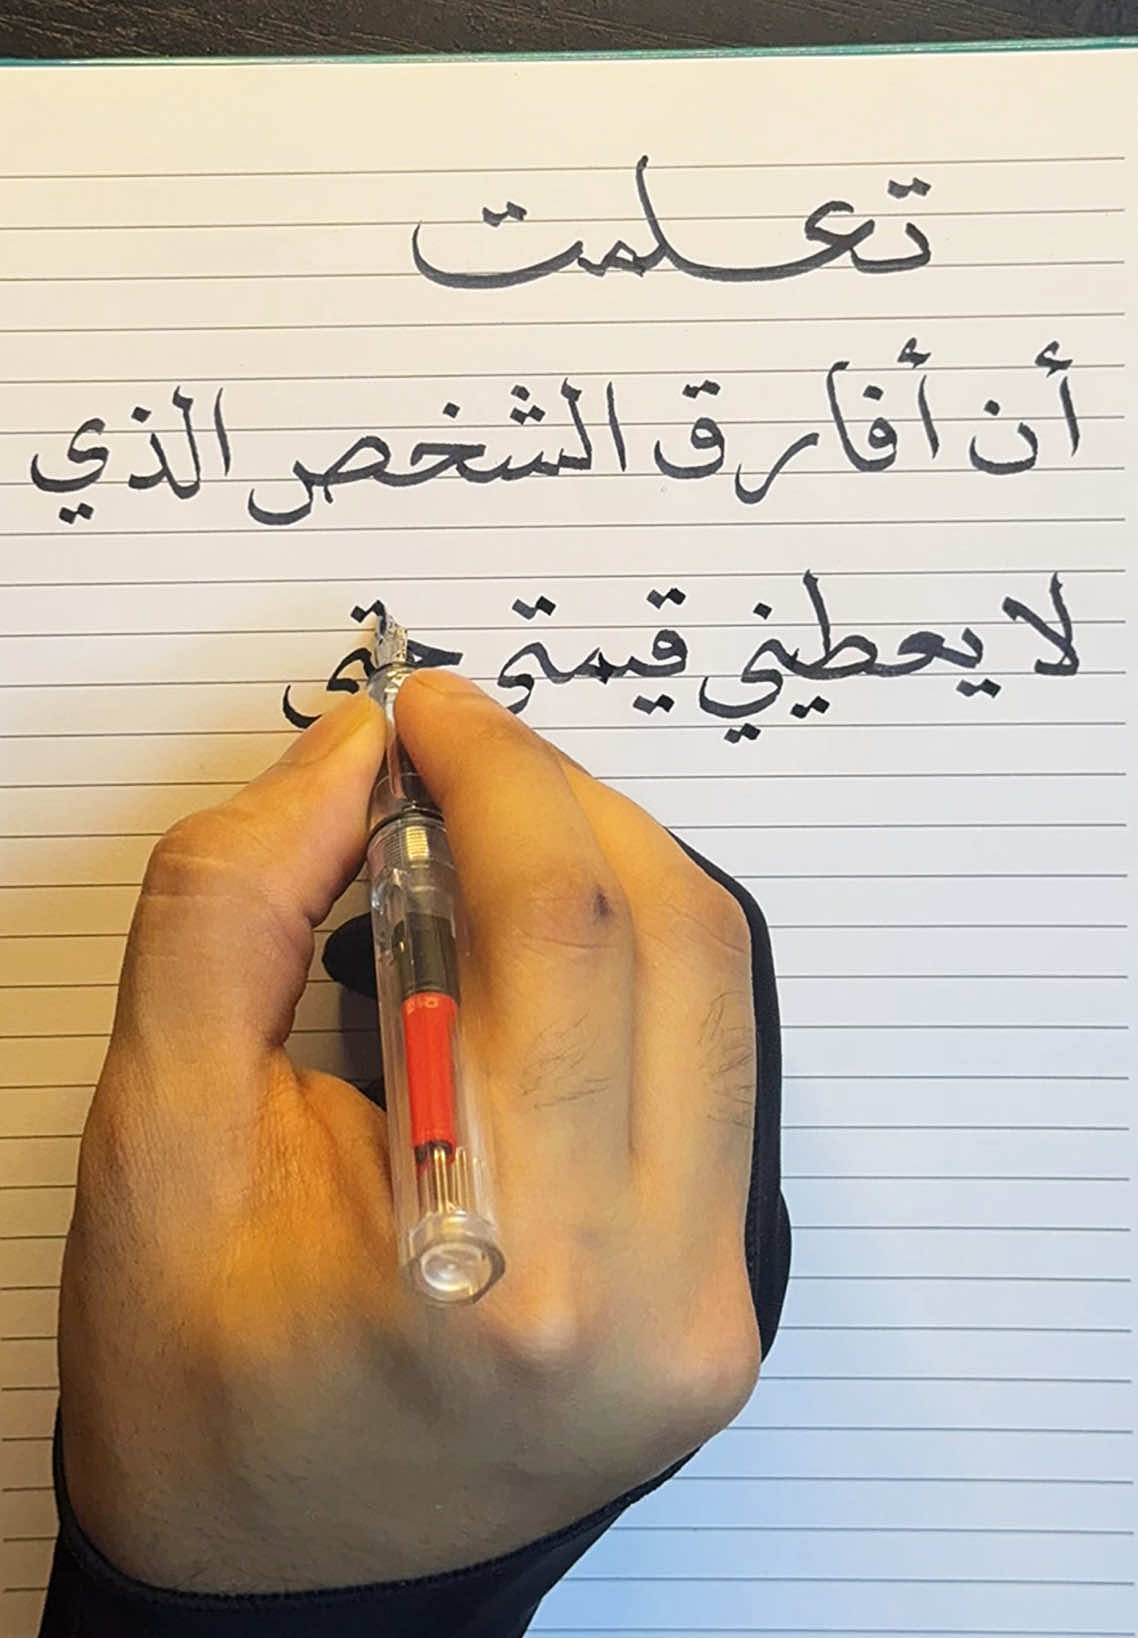 تعلمت
أن أفارق الشخص الذي
لا يعطيني قيمتي حتى